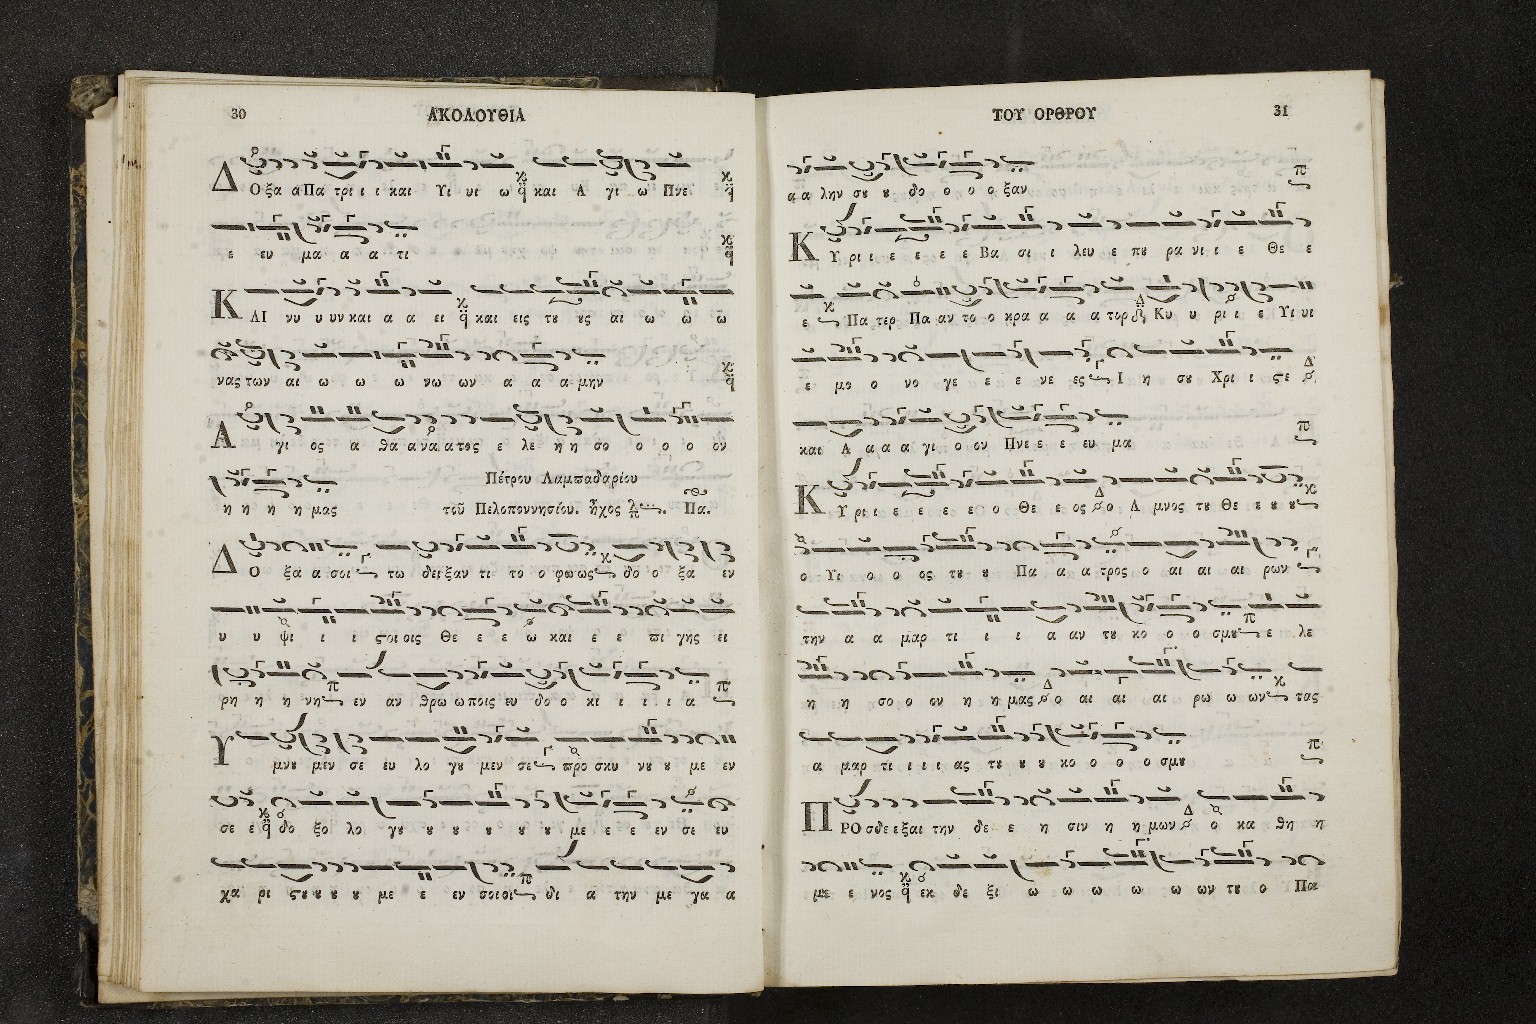 30 ΑΚΟΛΟΥΘΙΑ
Δ Οξα α Πα τρι ι ι και Υι υι ω και Α γι ω Πνε
ε ευ μα α α τι
Κ ΑΙ νυ υ υν και α α ει και εις τους αι ω ω ω
νας των αι ω ω ω νω ων α α α μην
Α γι ος α θα α να α τος ε λε η η σο ο ο ο ον
η η η η μας Πέτρου Λαμπαδαρίου
τοῦ Πελοποννησίου. ἦχος Πα.
Δ Ο ξα α σοι τω δειξαν τι το ο φω ως δο ο ξα εν
υ υ ψι ι ι ϛοι οις Θε ε ε ω και ε ε πι γης ει
ρη η η νη εν αν θρω ω ποις ευ δο ο κι ι ι ι α
Υ μνου μεν σε ευ λο γου μεν σε προ σκυ νου ου με εν
σε ε δο ξο λο γου ου ου ου ου ου με ε ε εν σε ευ
χα ρι ϛου ου ου ου με ε εν σοι οι δι α την με γα α
ΤΟΥ ΟΡΘΡΟΥ 31
α α λην σου ου δο ο ο ο ξαν
Κ Υ ρι ι ε ε ε ε Βα σι ι λευ ε που ρα νι ι ε Θε ε
ε Πα τερ Πα αν το ο κρα α α α τορ Κυ υ ρι ι ε Υι υι
ε μο ο νο γε ε ε νε ες Ι η σου Χρι ι ϛε
και Α α α α γι ο ον Πνε ε ε ευ μα
Κ Υ ρι ι ε ε ε ε ο Θε ε ος ο Α μνος του Θε ε ου ου
ο Υι ο ο ος του ου Πα α α τρος ο αι αι αι ρων
την α α μαρ τι ι ι α αν του κο ο ο σμου ε λε
η η σο ο ον η η μας ο αι αι αι ρω ω ων τας
α μαρ τι ι ι ι ας του ου ου κο ο ο ο σμου
Π ΡΟσ δε ε ξαι την δε ε η σιν η η μων ο κα θη η
με ε νος εκ δε ξι ω ω ω ω ω ων του ο Πα